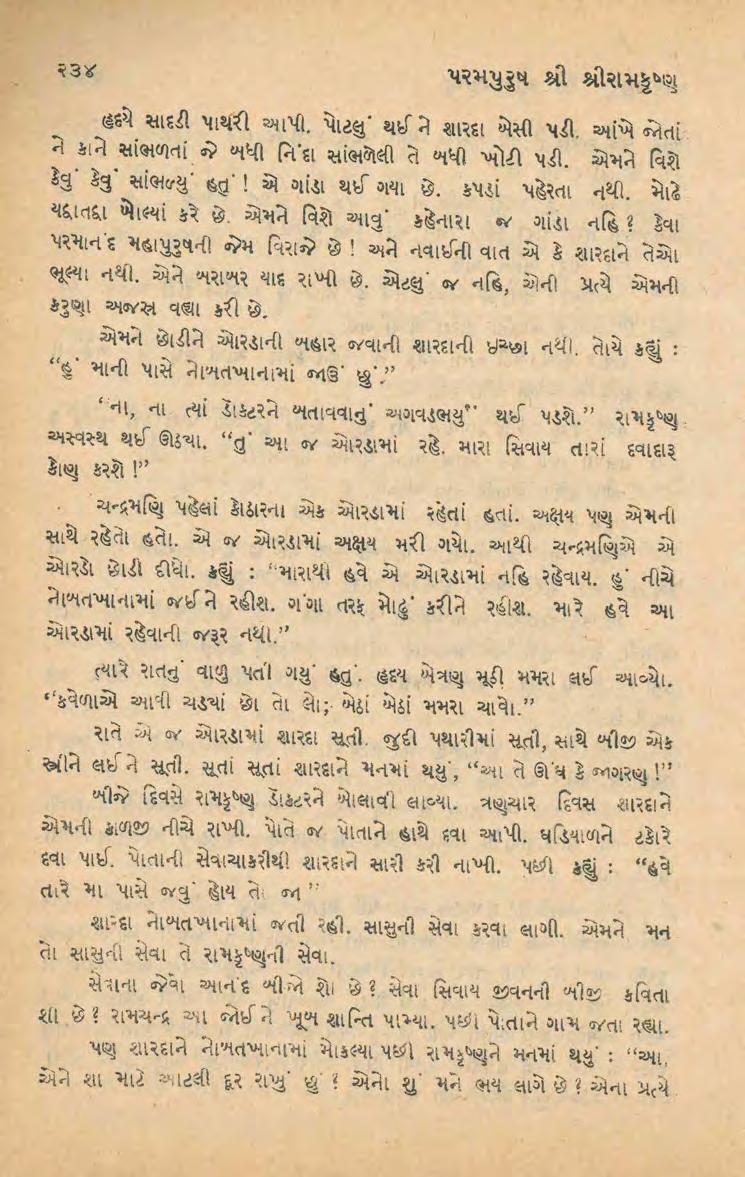 ૨૩૪
પરમપુરુષ શ્રી શ્રીરામકૃષ્ણ
હૃદયે સાદડી પાથરી આપી. પોટલું થઈ ને શારદા બેસી પડી. આંખે જોતાં
ને કાને સાંભળતાં જે બધી નિંદા સાંભળેલી તે બધી ખોટી પડી. એમને વિશે
કેવું કેવું સાંભળ્યું હતું! એ ગાંડા થઈ ગયા છે. કપડાં પહેરતા નથી. મોઢે
યદ્વાતદ્વા બોલ્યાં કરે છે. એમને વિશે આવું કહેનારા જ ગાંડા નહિ? કેવા
પરમાનંદ મહાપુરુષની જેમ વિરાજે છે! અને નવાઈની વાત એ કે શારદાને તેઓ
ભૂલ્યા નથી. એને બરાબર યાદ રાખી છે. એટલું જ નહિ, એની પ્રત્યે એમની
કરુણા અજસ્ર વહ્યા કરી છે.
એમને છોડીને ઓરડાની બહાર જવાની શારદાની ઇચ્છા નથી. તોયે કહ્યું :
“હું માની પાસે નોબતખાનામાં જાઉં છું.”
‘ના, ના ત્યાં ડૉક્ટરને બતાવવાનું અગવડભર્યું થઈ પડશે.” રામકૃષ્ણ
અસ્વસ્થ થઈ ઊઠ્યા. “તું આ જ ઓરડામાં રહે. મારા સિવાય તારાં દવાદારૂ
કોણ કરશે!”
ચન્દ્રમણિ પહેલાં કોઠારના એક ઓરડામાં રહેતાં હતાં. અક્ષય પણ એમની
સાથે રહેતો હતો. એ જ ઓરડામાં અક્ષય મરી ગયો. આથી ચન્દ્રમણિએ એ
ઓરડો છોડી દીધો. કહ્યું : “મારાથી હવે એ ઓરડામાં નહિ રહેવાય. હું નીચે
નોબતખાનામાં જઈ ને રહીશ. ગંગા તરફ મોઢું કરીને રહીશ. મારે હવે આ
ઓરડામાં રહેવાની જરૂર નથી.”
ત્યારે રાતનું વાળુ પતી ગયું હતું. હૃદય બેત્રણ મૂઠી મમરા લઈ આવ્યો.
“કવેળાએ આવી ચડ્યાં છો તો લો; બેઠાં બેઠાં મમરા ચાવો.”
રાતે એ જ ઓરડામાં શારદા સૂતી. જુદી પથારીમાં સૂતી, સાથે બીજી એક
સ્ત્રીને લઈ ને સૂતી. સૂતાં સૂતાં શારદાને મનમાં થયું, “આ તે ઊંઘ કે જાગરણ!”
બીજે દિવસે રામકૃષ્ણ ડૉક્ટરને બોલાવી લાવ્યા. ત્રણચાર દિવસ શારદાને
એમની કાળજી નીચે રાખી. પોતે જ પોતાને હાથે દવા આપી. ઘડિયાળને ટકોરે
દવા પાઈ. પોતાની સેવાચાકરીથી શારદાને સારી કરી નાખી. પછી કહ્યું : “હવે
તારે મા પાસે જવું હોય તો જા”
શારદા નોબતખાનામાં જતી રહી. સાસુની સેવા કરવા લાગી. એમને મન
તો સાસુની સેવા તે રામકૃષ્ણની સેવા.
સેવાના જેવો આનંદ બીજો શો છે? સેવા સિવાય જીવનની બીજી કવિતા
શી છે? રામચન્દ્ર આ જોઈ ને ખૂબ શાન્તિ પામ્યા. પછી પોતાને ગામ જતા રહ્યા.
પણ શારદાને નોબતખાનામાં મોકલ્યા પછી રામકૃષ્ણને મનમાં થયું : “આ,
એને શા માટે આટલી દૂર રાખું છું? એનો શું મને ભય લાગે છે? એના પ્રત્યે